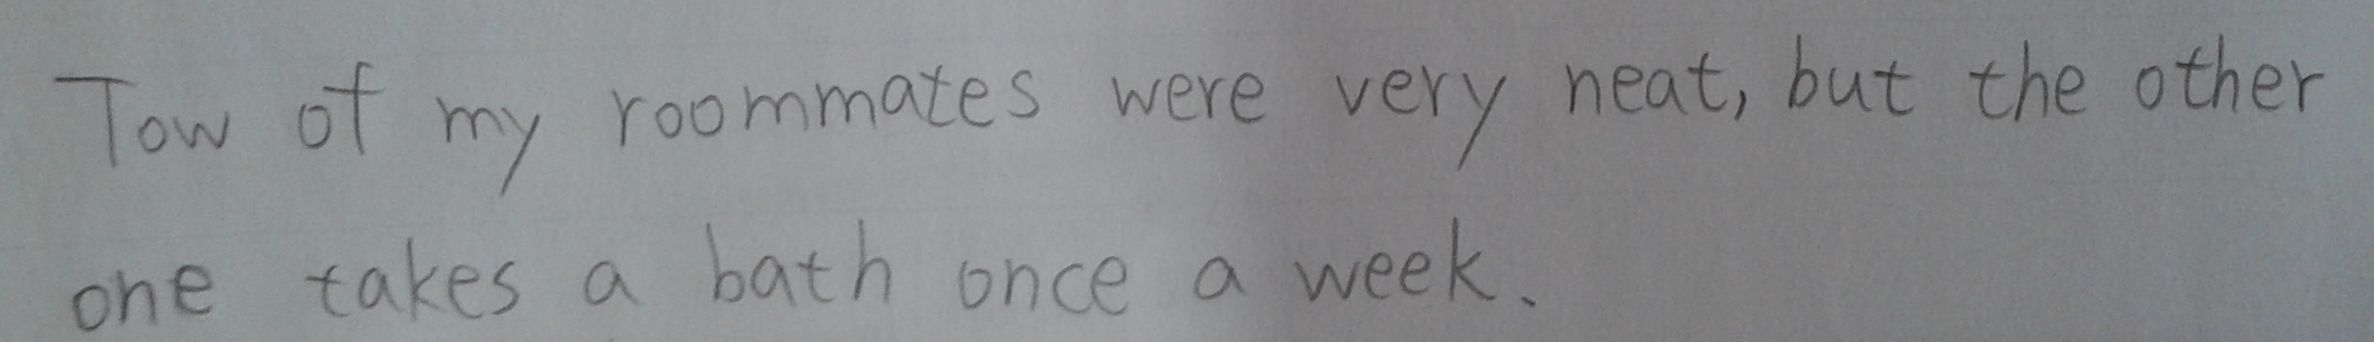 Tow of my roommates were very neat, but the other
one takes a bath once a week.